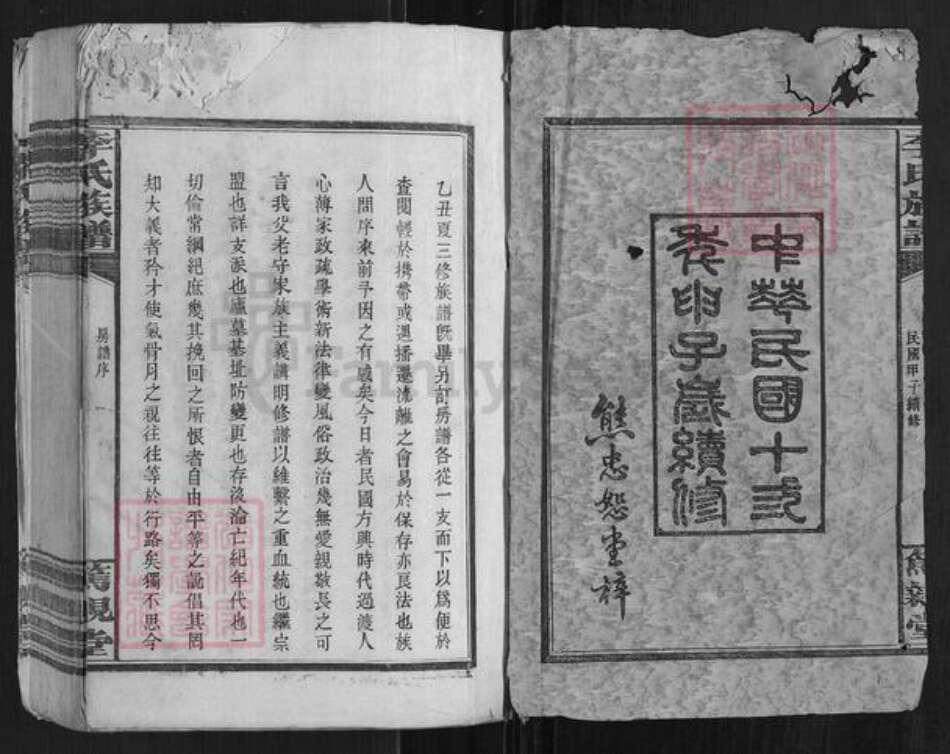 李氏族譜
民國甲子續修
篤親堂
中華民國十弎
年甲子歲續修
熊忠恕堂梓
乙丑夏三修族譜既畢另訂房譜各從一支而下以爲便於
查閱輕於携帶或遇播遷流離之會易於保存亦良法也族
人問序來前予因之有感矣今日者民國方興時代過渡人
心薄家政疏學術新法律變風俗政治幾無愛親敬長之可
言我父老守宋族主義講明修譜以維繫之重血統也繼宗
盟也詳支派也廬墓基址防變更也存沒淪亡紀年代也一
切倫常綱紀庶幾其挽回之所恨者自由平等之說倡其罔
知大義者矜才使氣骨肉之視往往等於行路矣獨不思今
李氏族譜
房譜序
篤親堂